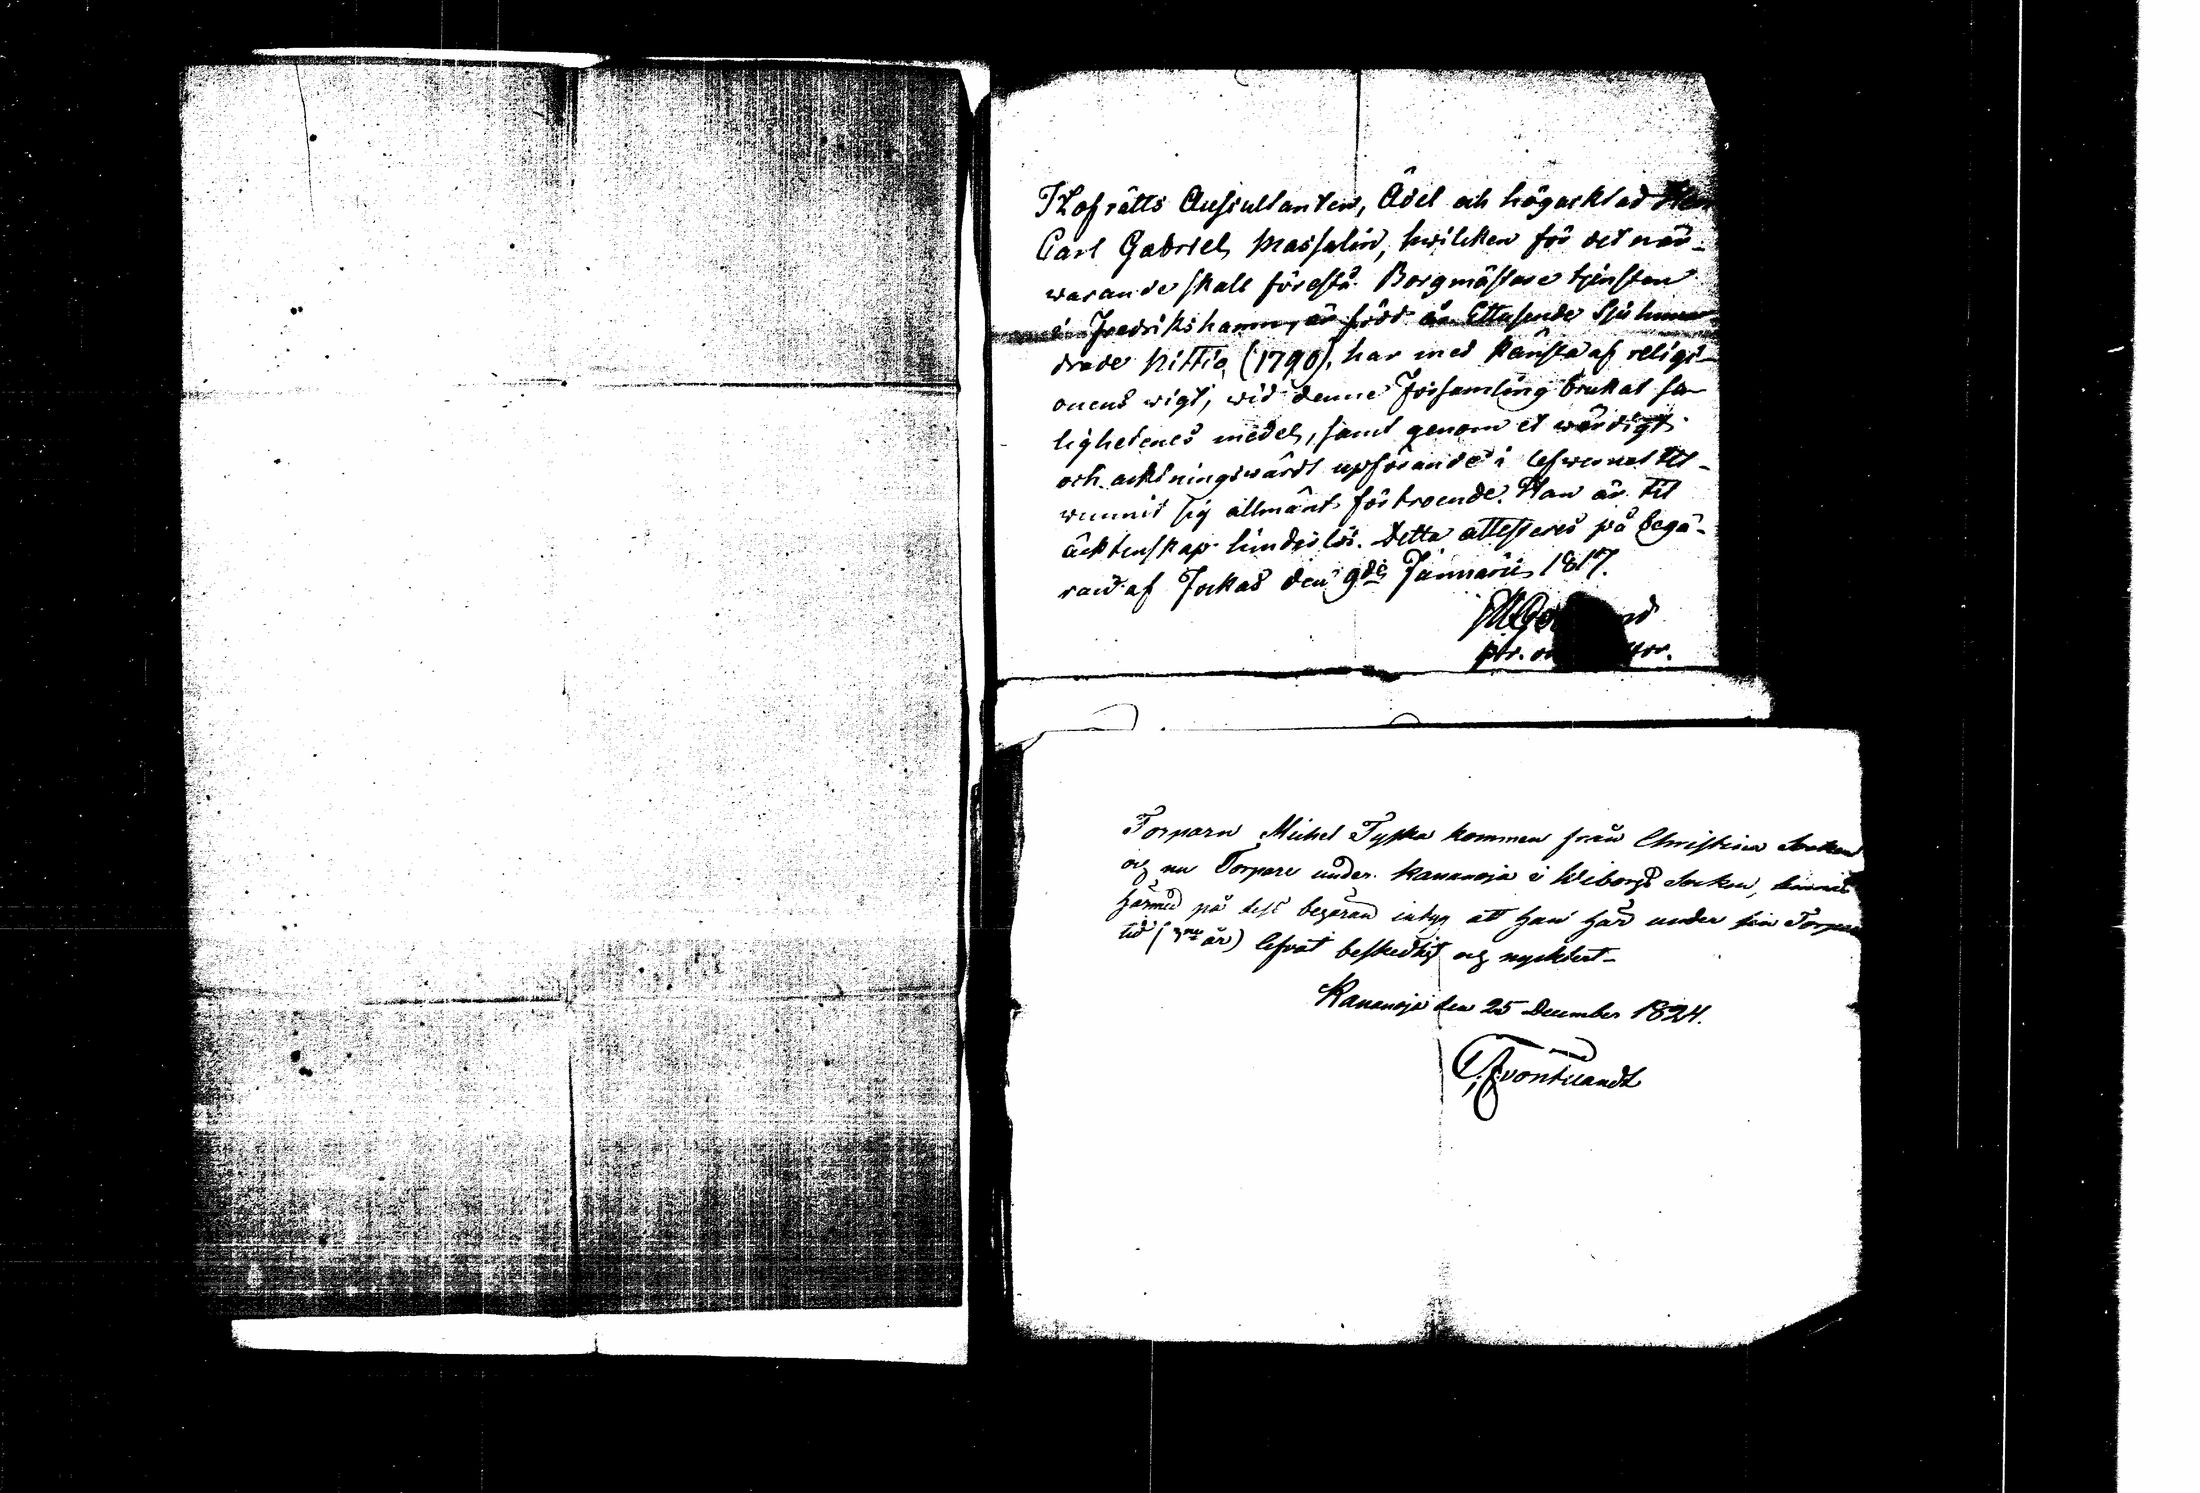 Hofrätts Auscultanten, Ädel och högacktad Herr
Carl Gabriel Massalin, hwilcken för det när-
warande skall förestå Borgmästare tjensten
i Fredrikshamn, är född år Ettusende Sjuhun-
drade Nittio (1790), har med känsla af religi-
onens wigt, wid denne Församling brukat sa-
lighetenes medel, samt genom et wärdigt
och acktningswärdt upförande i lefwernet til-
wunnit sig allmänt förtroende. Han är til
äcktenskap hinderlös. Detta attesteras på begä-
ran af Jockas den 9de Januarii 1817.
Torparn Michel Typka kommen från Christina Socken
och nu Torpare under Kananoja i Wiborgs Socken,
härmed på dess begäran intyg att han här under sin Torpare
tid (3ne år) lefvat beskedligt och nycktert-
Kananoja den 25 December 1824.